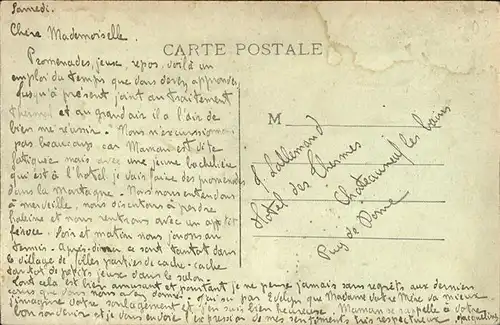 Samedi.
Chère Mademoiselle.
CARTE POSTALE
Promenades, jeux, repos, voilà un
emploi du temps que vous devez approuver
Jusqu'à présent joint au traitement
thermal et au grand air il a l'air de
bien me réussir. Nous n'excursionnons
pas beaucoup car Maman est vite
fatiguée mais avec une jeune bachelière
qui est à l'hôtel je vais faire des promenades
dans la montagne. Nous nous entendons
à merveille, nous discutons à perdre
haleine et nous rentrons avec un appétit
féroce. Soir et matin nous jouons au
tennis. Après-dîner ce sont tantôt dans
le village de folles parties de cache-cache
tantôt de petits jeux dans le salon.
Tout cela est bien amusant et pourtant je ne pense jamais sans regrets aux derniers
jours que vous nous avez donné. J'ai su par Evelyn que Madame votre Mère va mieux
j'imagine votre soulagement et j'en suis bien heureuse. Maman se rappelle à votre
bon souvenir et je vous envoie l'expression de mes sentiments très respectueux Jacqueline
M
J. Lallemand
Hôtel des Thermes
Chateauneuf les bains
Puy de Dome